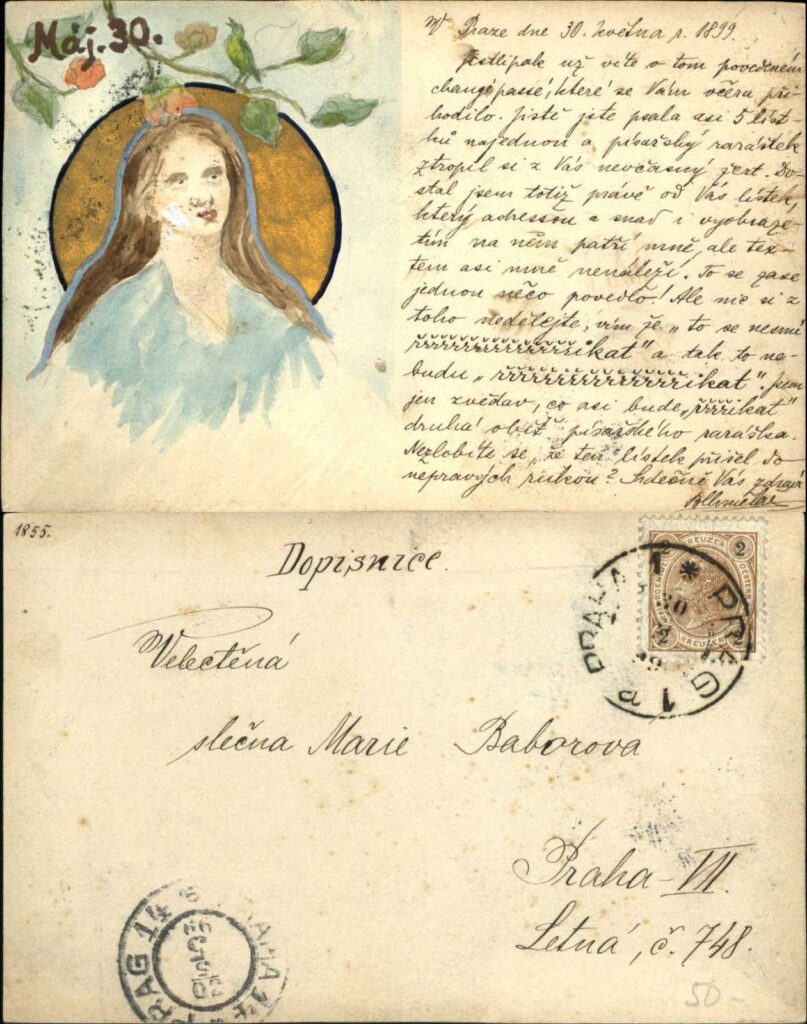 Máj. 30.
V Praze dne 30. května r. 1899.
Jestlipak už víte o tom povedeném
changé passé, které se Vám včera při-
hodilo. Jistě jste psala asi 5 líst-
ků najednou a písařský rarášek
ztropil si z Vás nevčasný žert. Do-
stal jsem totiž právě od Vás lístek,
který adressou a snad i vyobraze-
ním na něm patří mně, ale tex-
tem asi mně nenáleží. To se zase
jednou něco povedlo! Ale nic si z
toho nedělejte, vím že „to se nesmí
řřřřřřřřřřřřřřříkat" a tak to ne-
budu „řřřřřřřřřřřřřřříkat". Jsem
jen zvědav, co asi bude „řřřříkat"
druhá oběť písařského raráška.
Nezlobíte se, že ten lístek přišel do
nepravých rukou? Srdečně Vás zdraví
1855.
Dopisnice.
2 KREUZER 2
KREUZER
PRAHA 1 * PRAG 1
30
Velectěná
slečna Marie Baborova
Praha-VII.
Letná, č. 748.
PRAG 14 PRAHA 14
50-